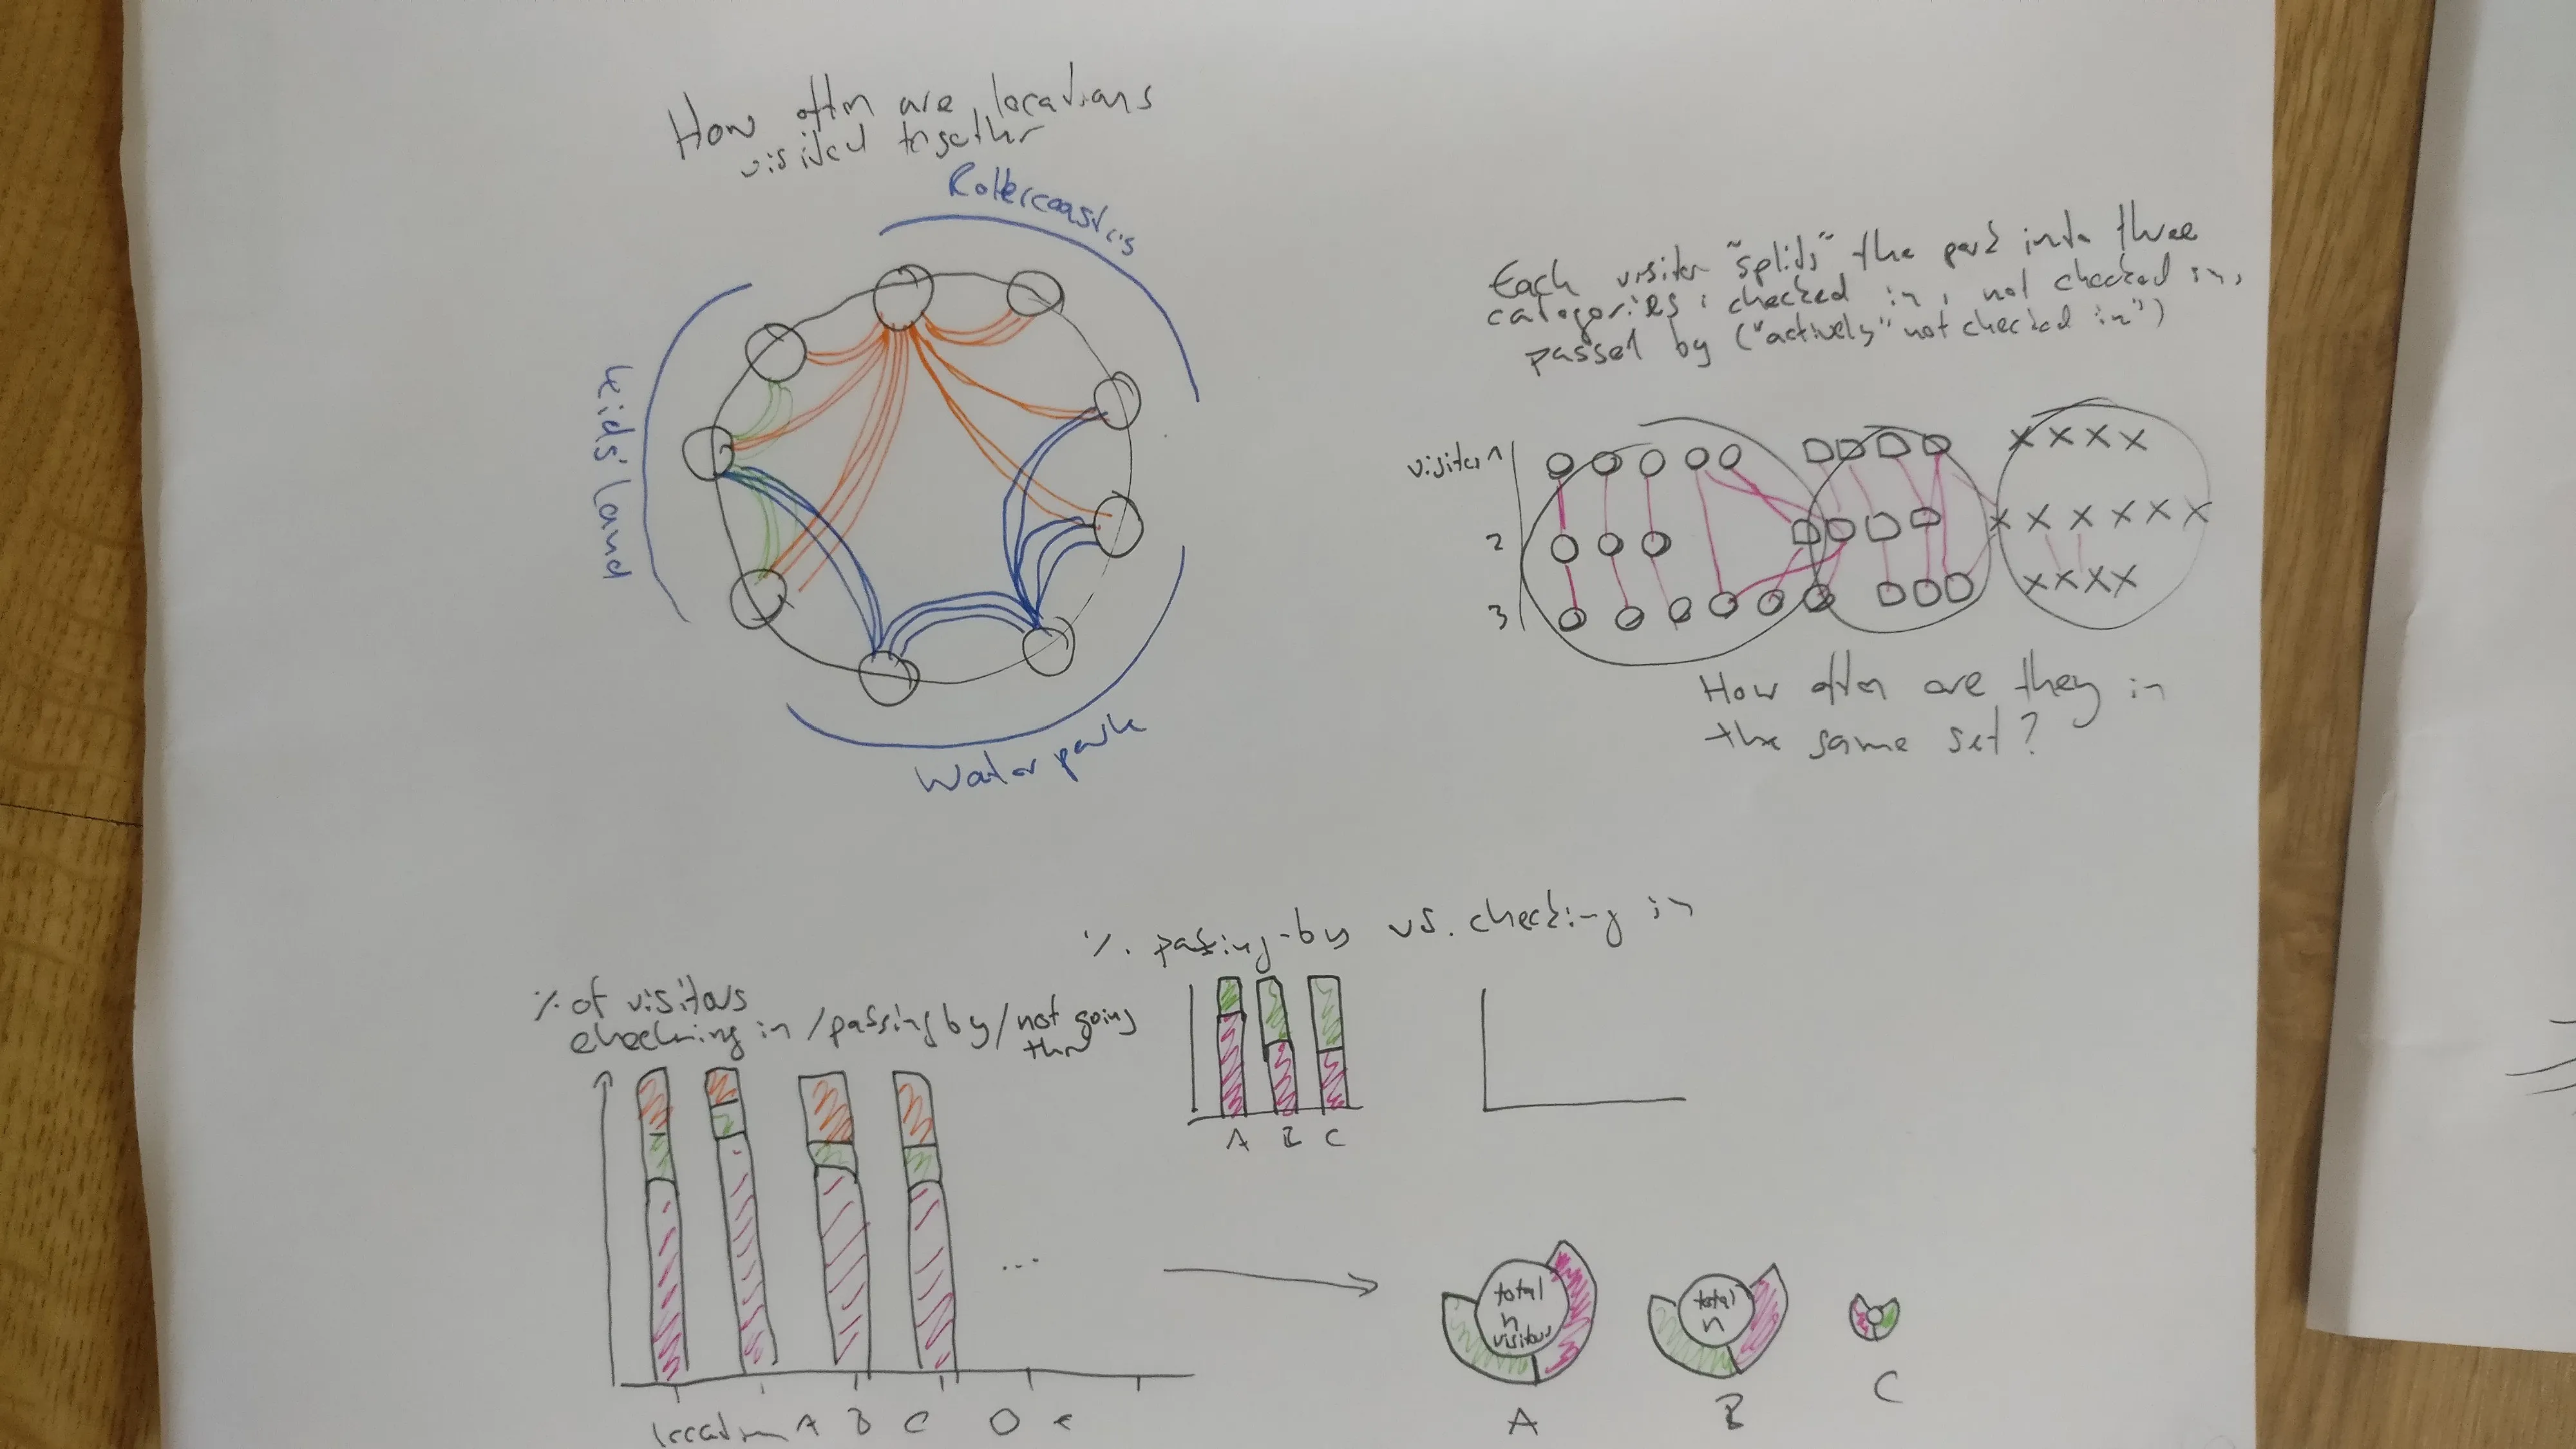 How often are locations
visited together
Rollercoasters
kids' land
Water park
Each visitor "splits" the park into three
categories: checked in, not checked in,
passed by ("actively" not checked in")
visitor 1
2
3
How often are they in
the same set?
% passing-by vs. checking in
A B C
% of visitors
checking in / passing by / not going
thru
...
location A B C D E
total
n
visitors
A
total
n
B
C